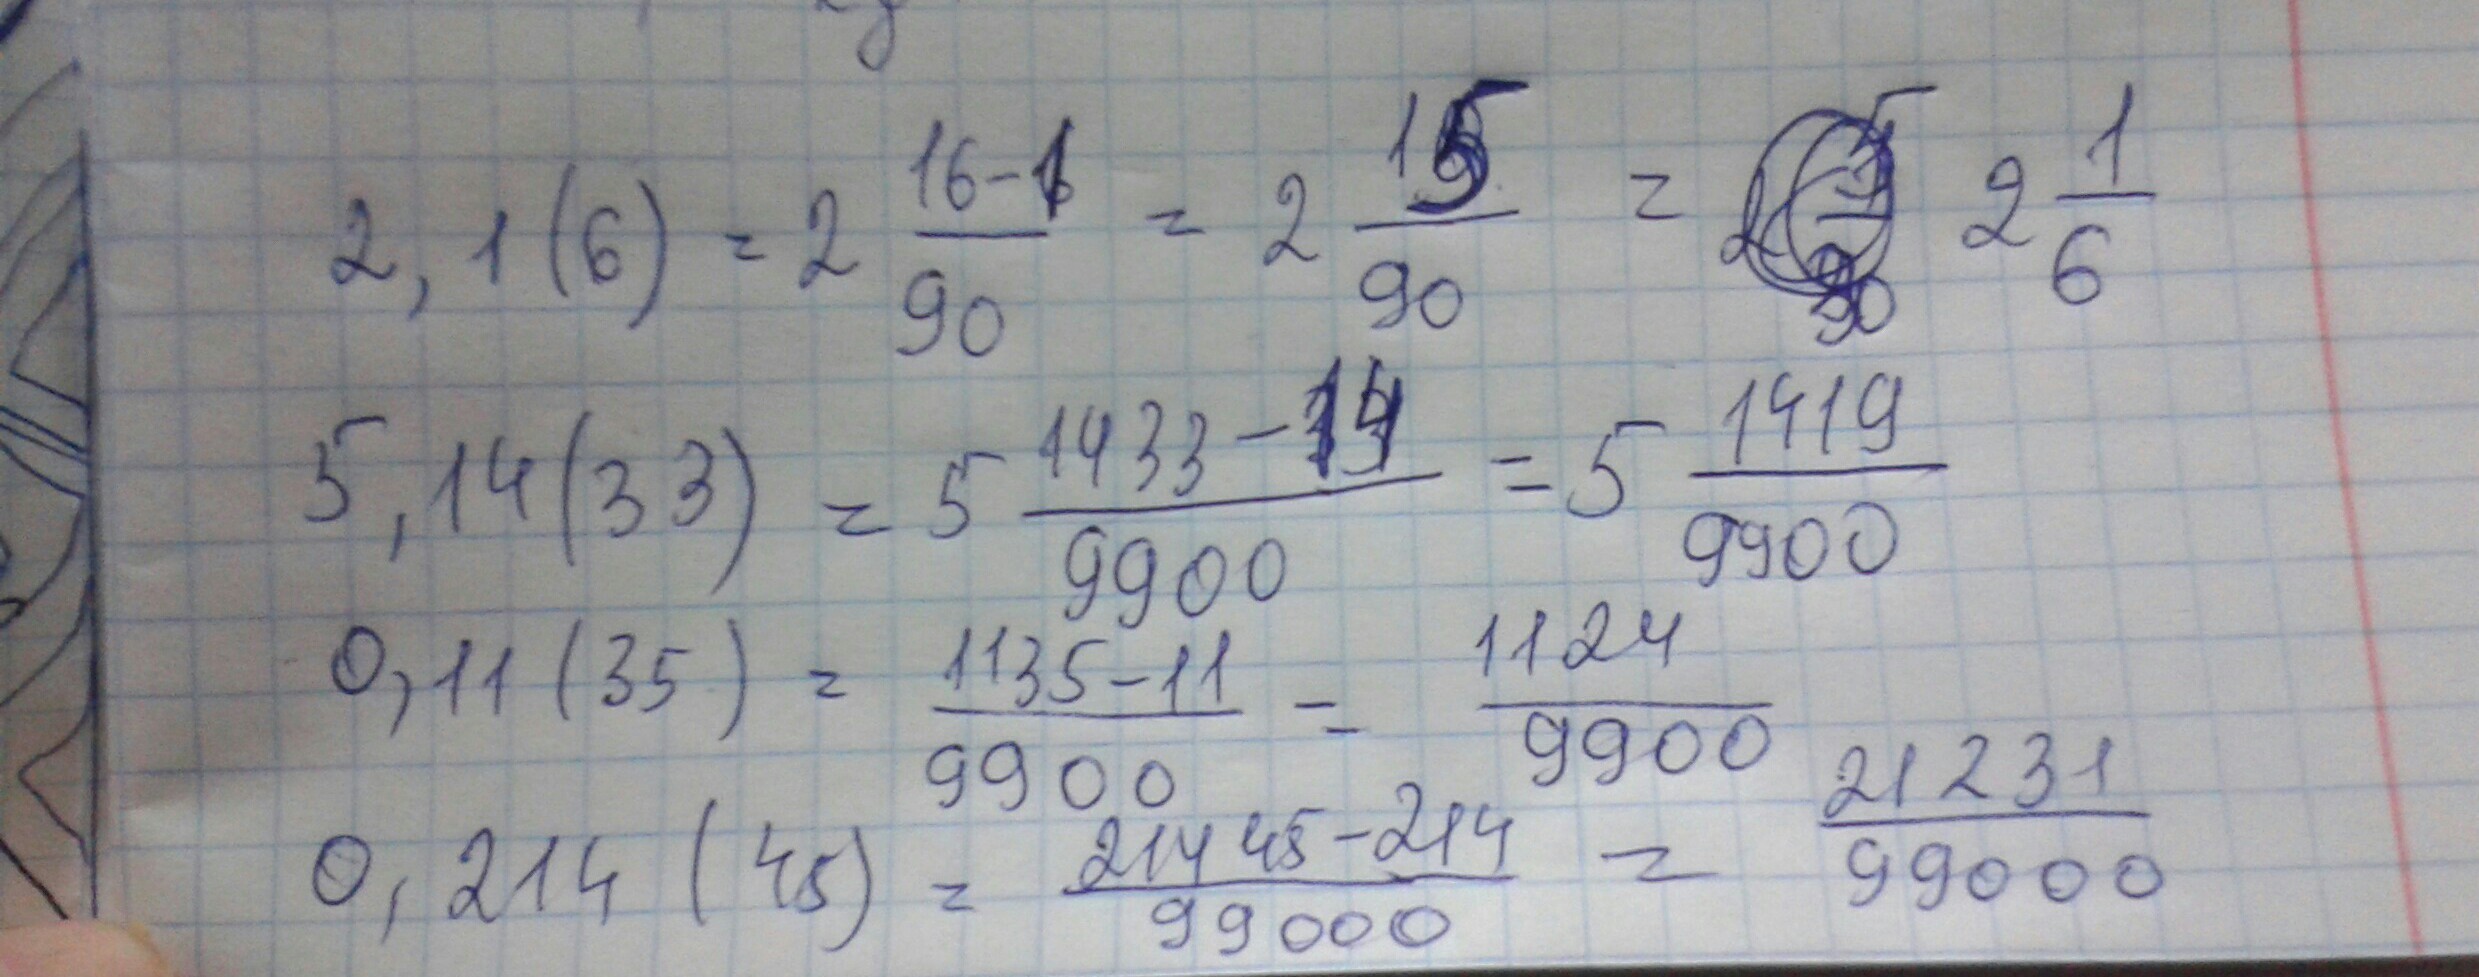 2,1(6) = 2 16-1/90 = 2 15/90 = 2 1/6
5,14(33) = 5 1433-14/9900 = 5 1419/9900
0,11(35) = 1135-11/9900 = 1124/9900
0,214(45) = 21445-214/99000 = 21231/99000